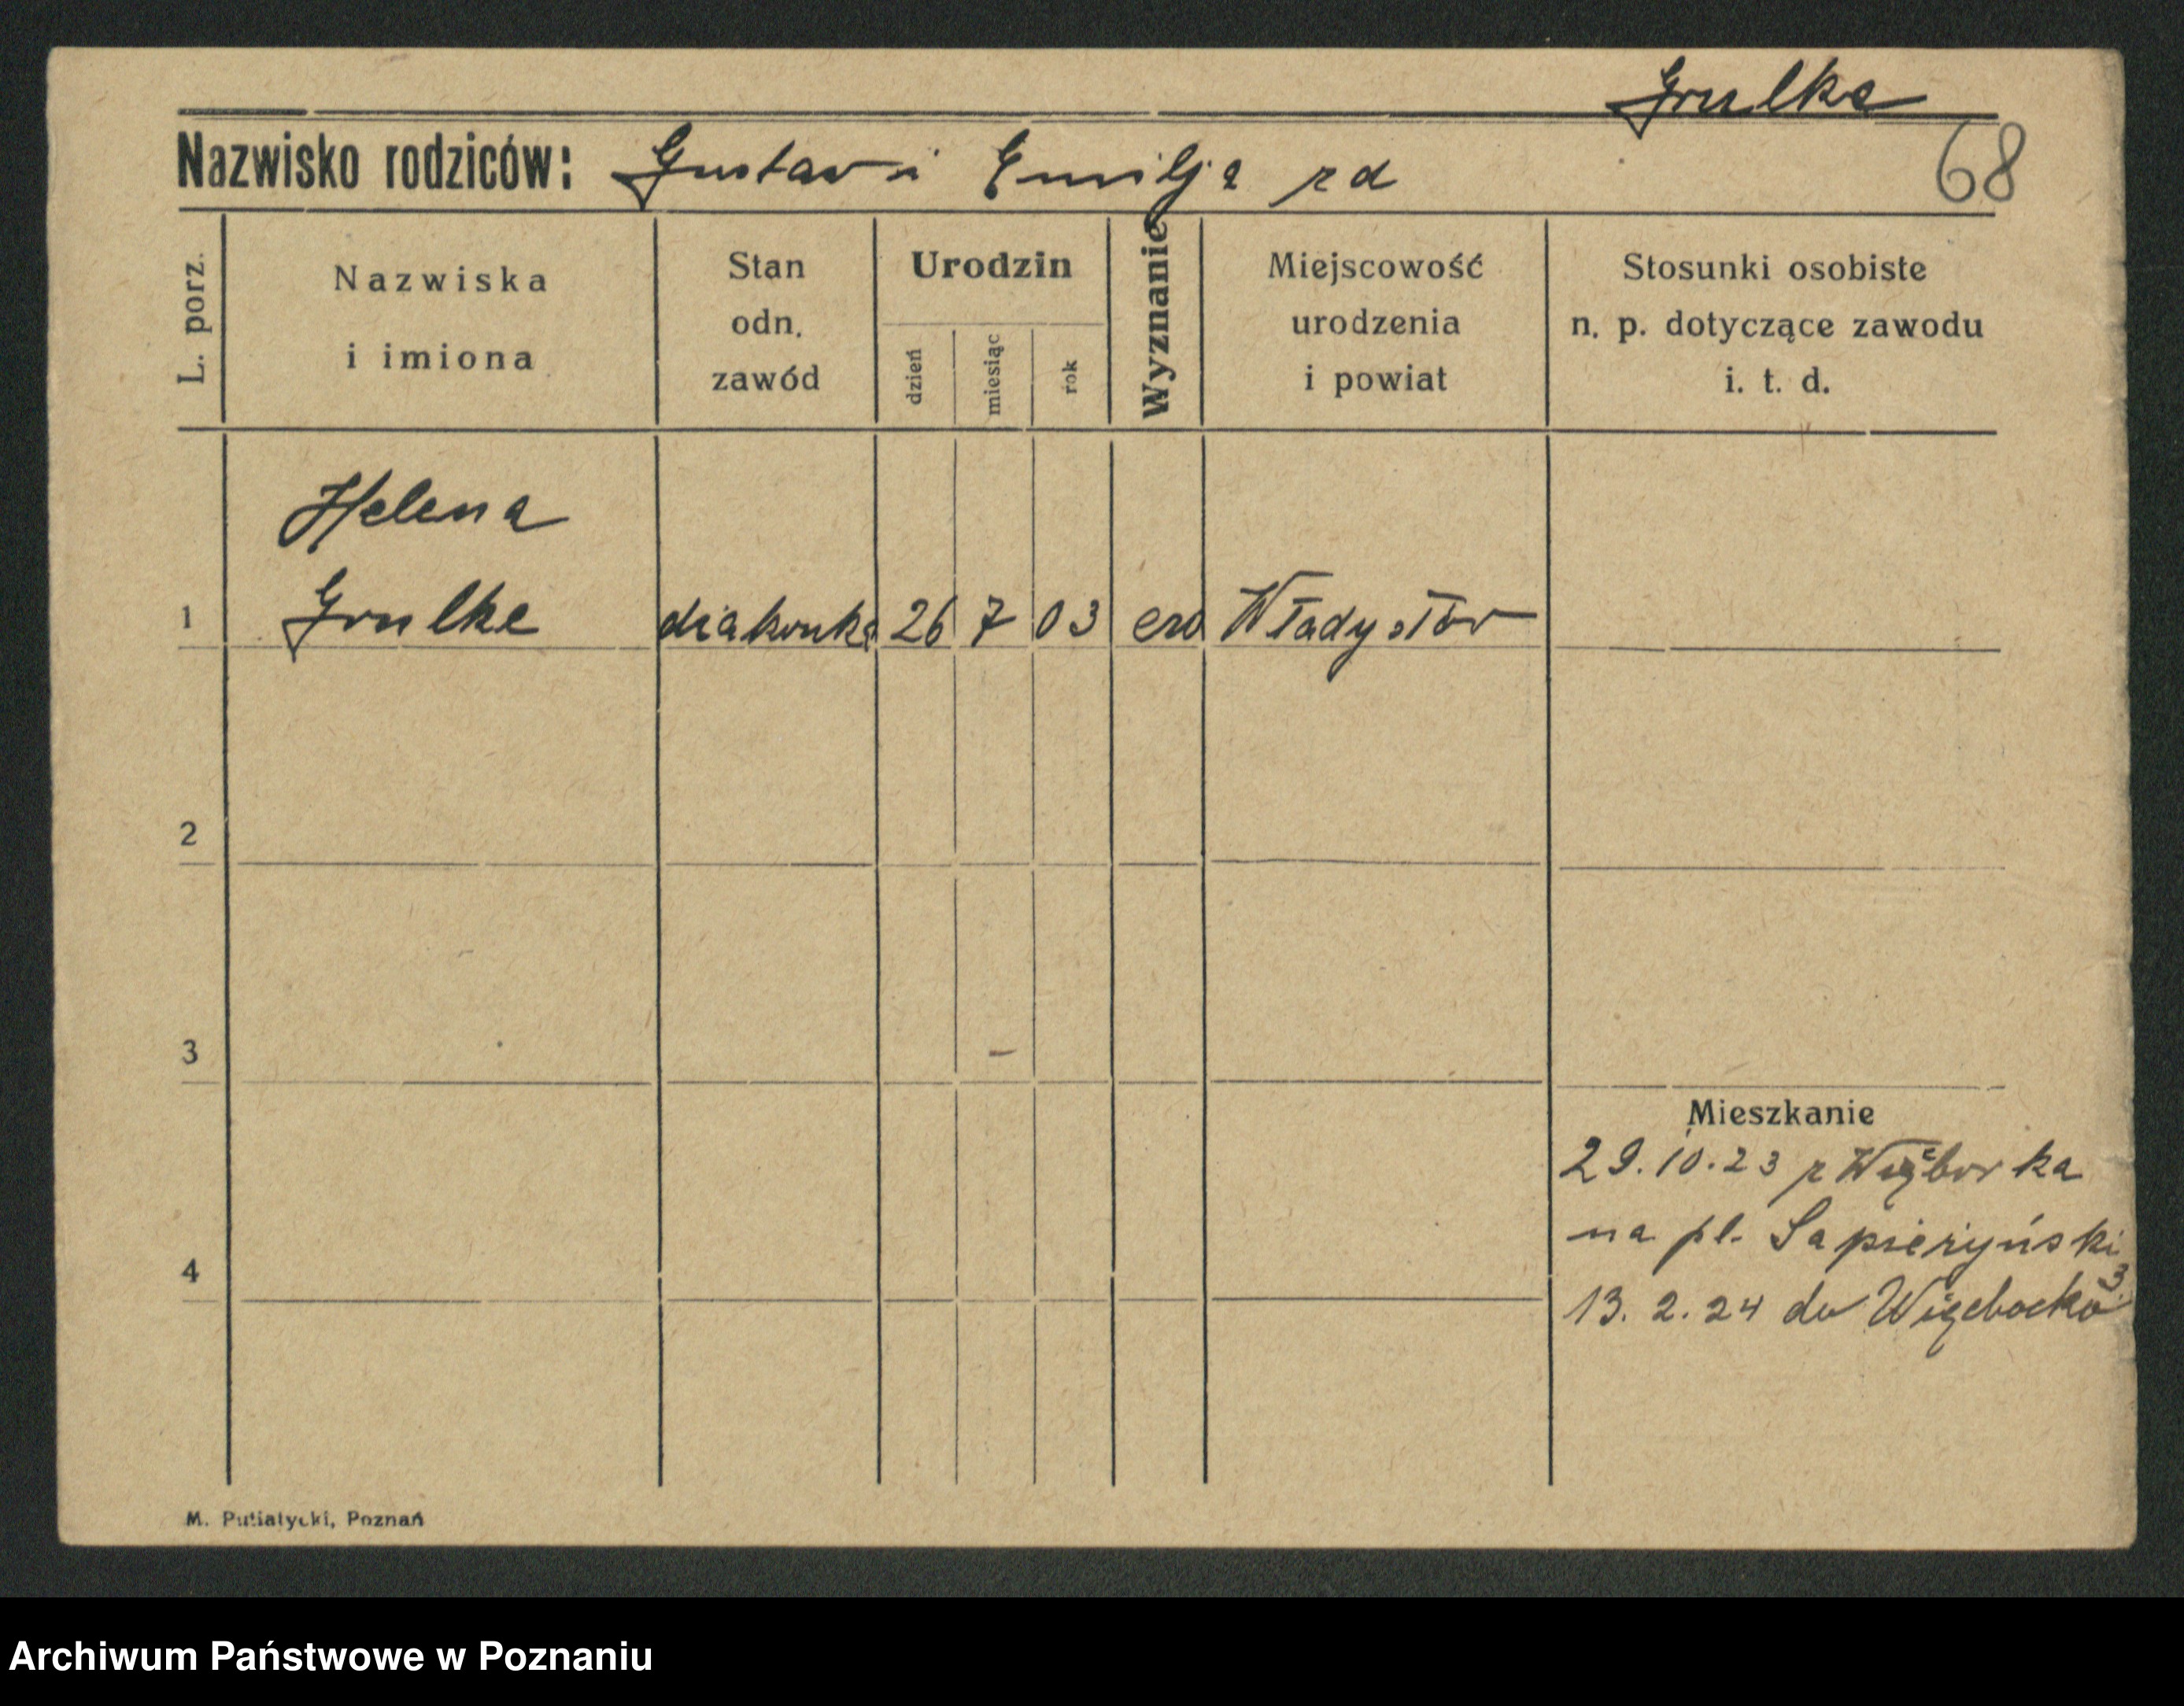 Grulke
Nazwisko rodziców: Gustav i Emilja zd
68
L. porz.
Nazwiska
i imiona
Stan
odn.
zawód
Urodzin
dzień
miesiąc
rok
Wyznanie
Miejscowość
urodzenia
i powiat
Stosunki osobiste
n. p. dotyczące zawodu
i. t. d.
Helena
1 Grulke diakonka 26 7 03 ew Władysłow
2
3
Mieszkanie
29.10.23 z Więborka
na pl. Sapieżyński
3
4
13. 2. 24 do
M. Putiatycki, Poznań
Archiwum Państwowe w Poznaniu